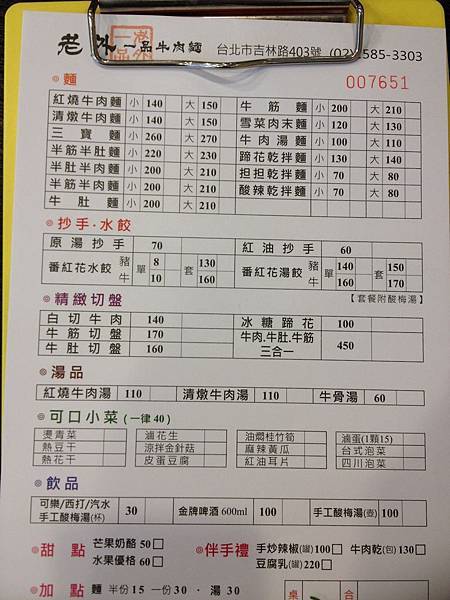 老外 一品牛肉麵 台北市吉林路403號 (02) 585-3303
007651
麵
紅燒牛肉麵 小 140 大 150 牛筋麵 小 200 大 210
清燉牛肉麵 小 140 大 150 雪菜肉末麵 小 120 大 130
三寶麵 小 260 大 270 牛肉湯麵 小 100 大 110
半筋半肚麵 小 220 大 230 蹄花乾拌麵 小 130 大 140
半肚半肉麵 小 200 大 210 担担乾拌麵 小 70 大 80
半筋半肉麵 小 200 大 210 酸辣乾拌麵 小 70 大 80
牛肚麵 小 200 大 210
抄手·水餃
原湯抄手 70 紅油抄手 60
番紅花水餃 豬 牛 單 8 10 套 130 160 番紅花湯餃 豬 牛 單 140 160 套 150 170
【套餐附酸梅湯】
精緻切盤
白切牛肉 140 冰糖蹄花 100
牛筋切盤 170 牛肉.牛肚.牛筋 三合一 450
牛肚切盤 160
湯品
紅燒牛肉湯 110 清燉牛肉湯 110 牛骨湯 60
可口小菜 (一律40)
燙青菜 滷花生 油燜桂竹筍 滷蛋(1顆15)
熱豆干 涼拌金針菇 麻辣黃瓜 台式泡菜
熱花干 皮蛋豆腐 紅油耳片 四川泡菜
飲品
可樂/西打/汽水 手工酸梅湯(杯) 30 金牌啤酒 600ml 100 手工酸梅湯(壺) 100
甜點 芒果奶酪 50□ 伴手禮 手炒辣椒(罐)100□ 牛肉乾(包)130□
水果優格 60□ 豆腐乳(罐)220□
加點 麵 半份15 一份30 · 湯30 桌 合